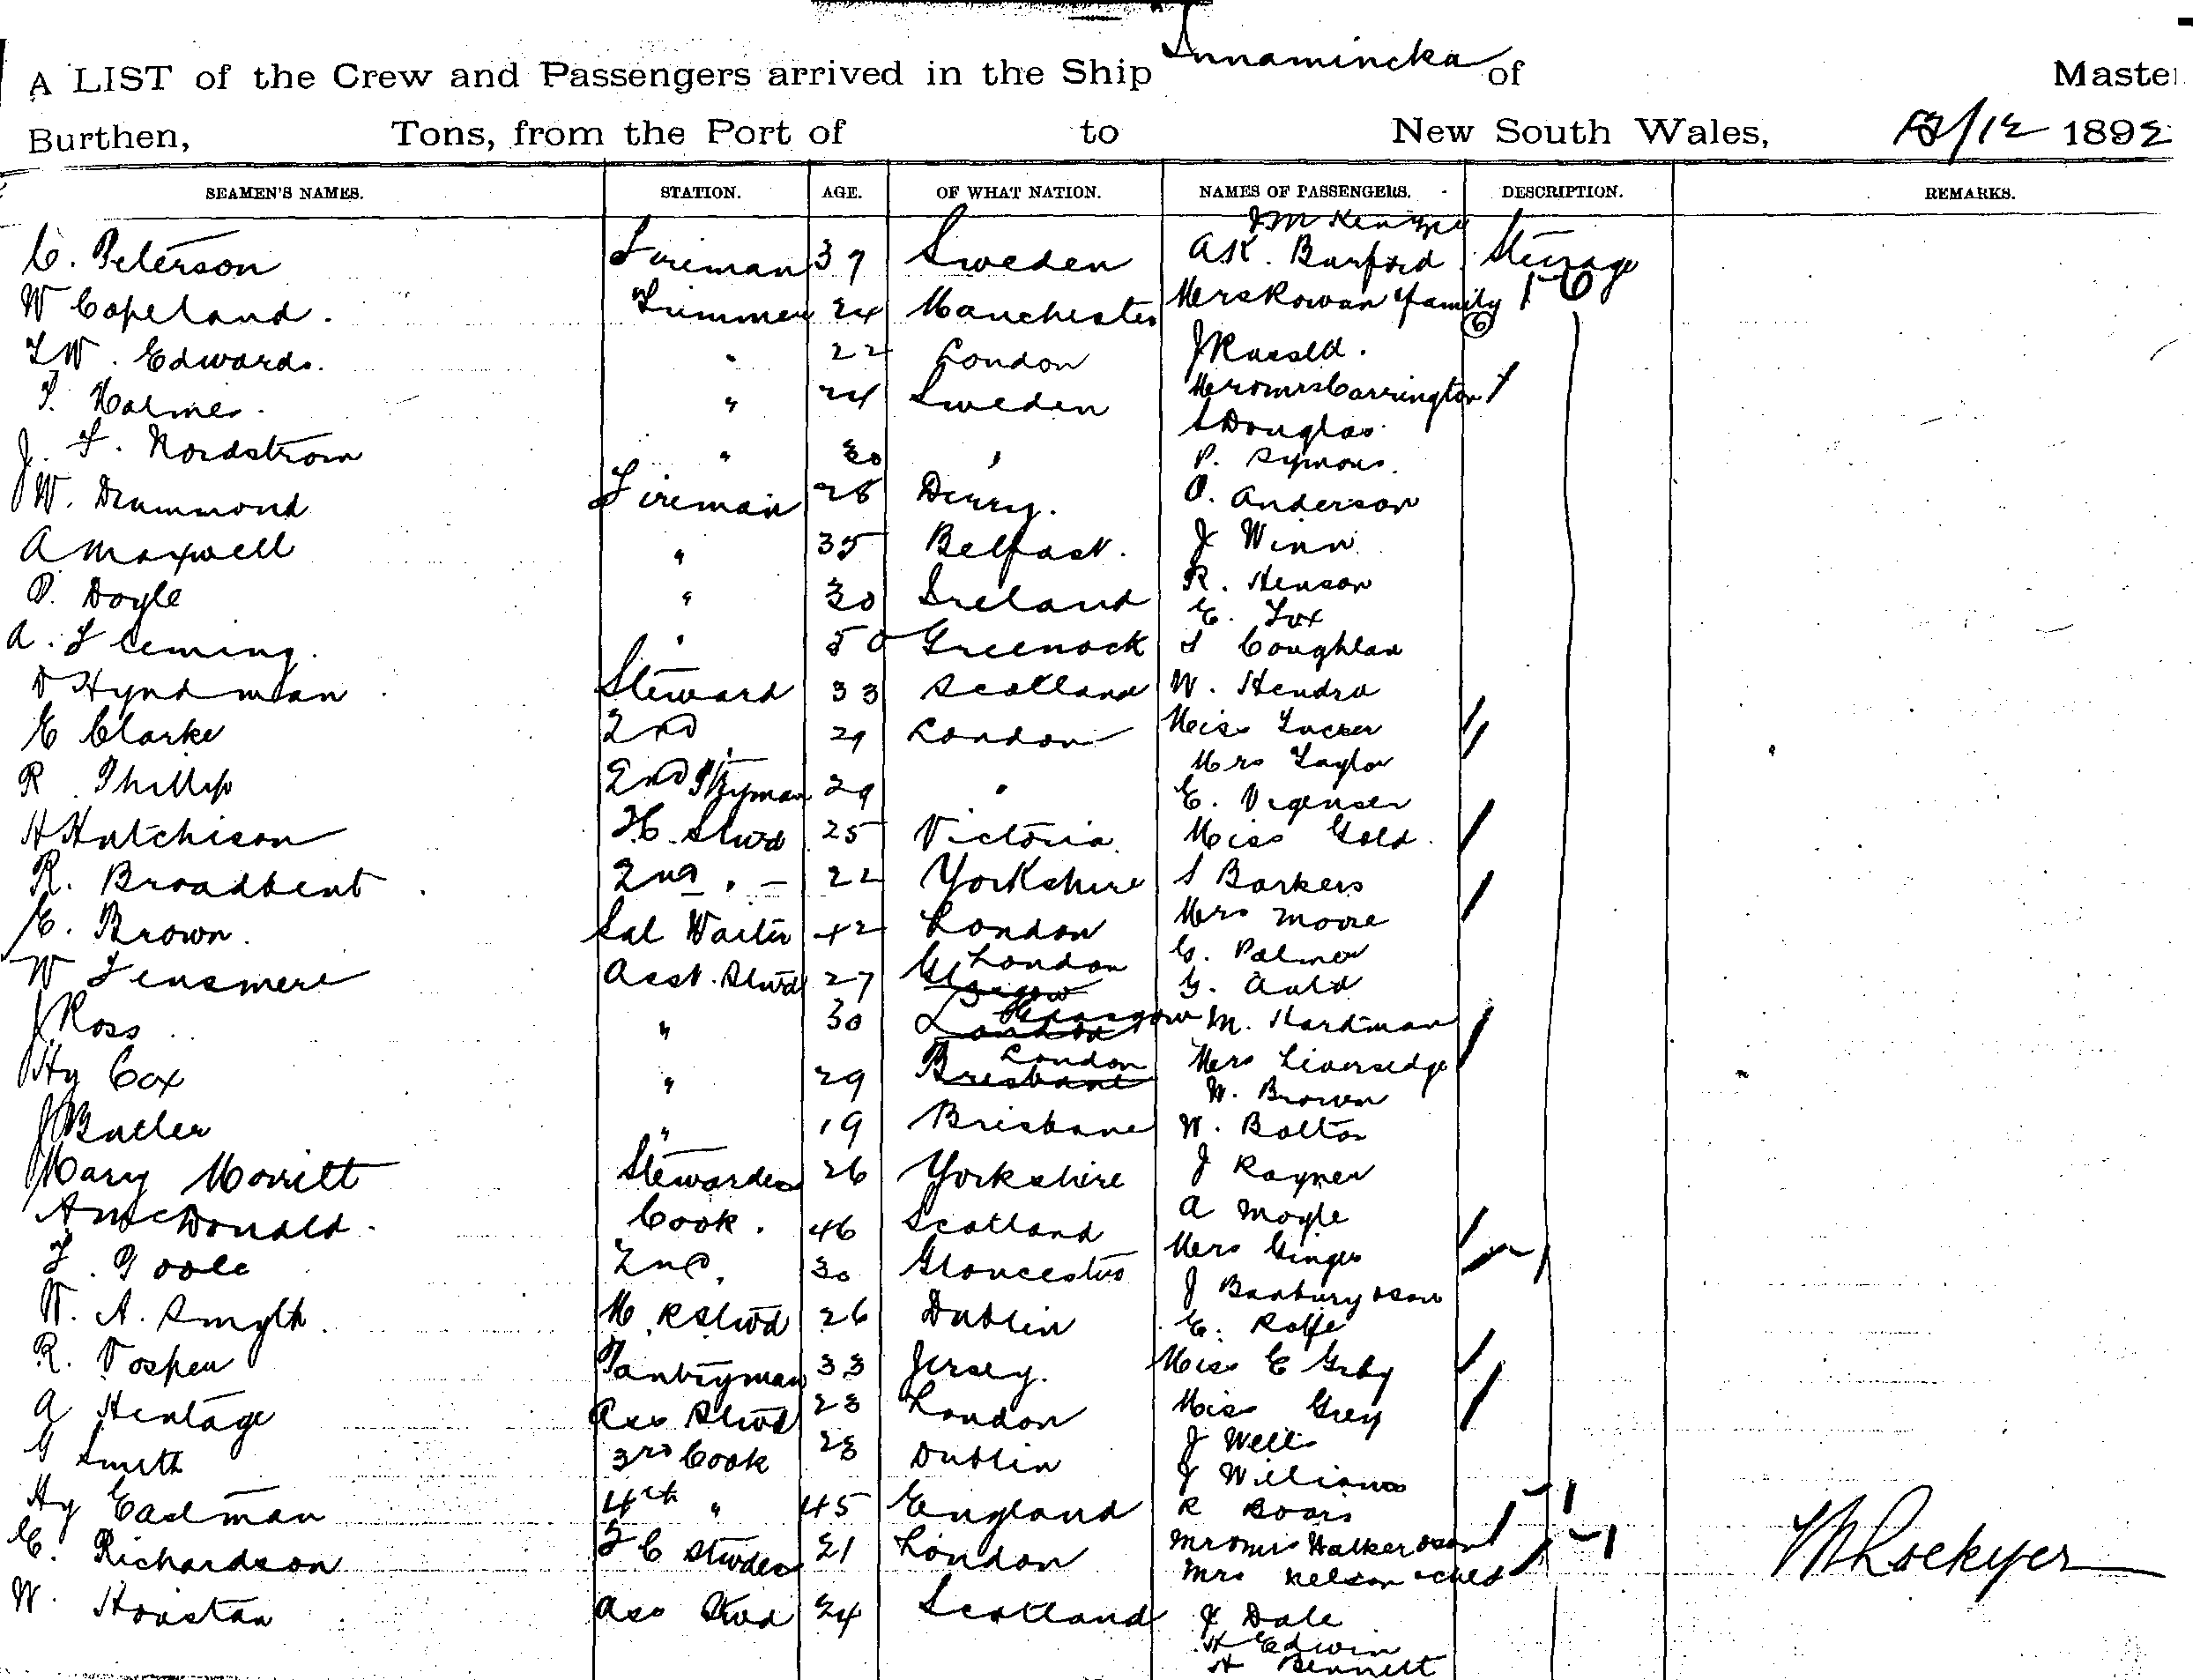 Innamincka
A LIST of the Crew and Passengers arrived in the Ship of Master
Burthen, Tons, from the Port of to New South Wales, 12/12 1892
SEAMEN'S NAMES. STATION. AGE. OF WHAT NATION. NAMES OF PASSENGERS. DESCRIPTION. REMARKS.
J McKenzie
C. Peterson Fireman 37 Sweden A K. Burford Steerage
W Copeland. Trimmer 24 Manchester Mrs Rowan & family (6)
T W. Edwards. " 22 London J Russell.
T. Holmes. " 24 Sweden Mr & Mrs Carrington
S Douglas
J. F. Nordstrom " 30 " P. Symons.
W. Drummond Fireman 28 Derry. O. Anderson
A Maxwell " 35 Belfast. J Winn
P. Doyle " 30 Ireland R. Henson
E. Fox
A. Fleming. " 50 Greenock S Coughlan
D Hyndman Steward 33 Scotland W. Hendra
E Clarke 2nd 29 London Miss Tucker
Mrs Taylor
R Phillip 2nd P'tryman 29 " E.
H Hutchison F.C. Stwd 25 Victoria. Miss Gold.
R. Broadbent 2nd " 22 Yorkshire S Barkers
E. Brown. Sal Waiter 42 London Mrs Moore
G. Palmer
W Tensmere Asst. Stwd 27 Glasgow London G. Auld
J Ross " 30 London Glasgow M. Hardman
Hy Cox " 29 Brisbane London Mrs Liversedge
W. Brown
J Butler " 19 Brisbane W. Bolton
Mary Morritt Stewardess 26 Yorkshire J Rayner
A McDonald. Cook. 46 Scotland A Moyle
F. Poole 2nd " 30 Gloucester Mrs Ginger
J Banbury & son
W. A. Smyth. M. R Stwd 26 Dublin E. Rolfe
R. Vosper Pantryman 33 Jersey. Miss E
A Hentage Ass Stwd 23 London Miss Grey
J Wells
G Smith 3rd Cook 23 Dublin J Williams
Hy Eastman 4th " 45 England R Boors
E. Richardson F C Stwdess 21 London Mr & Mrs Walker & son
Mrs Nelson & child
W. Houstan Ass Stwd 24 Scotland J Dale
H Edwin
H Bennett
W Lockyer